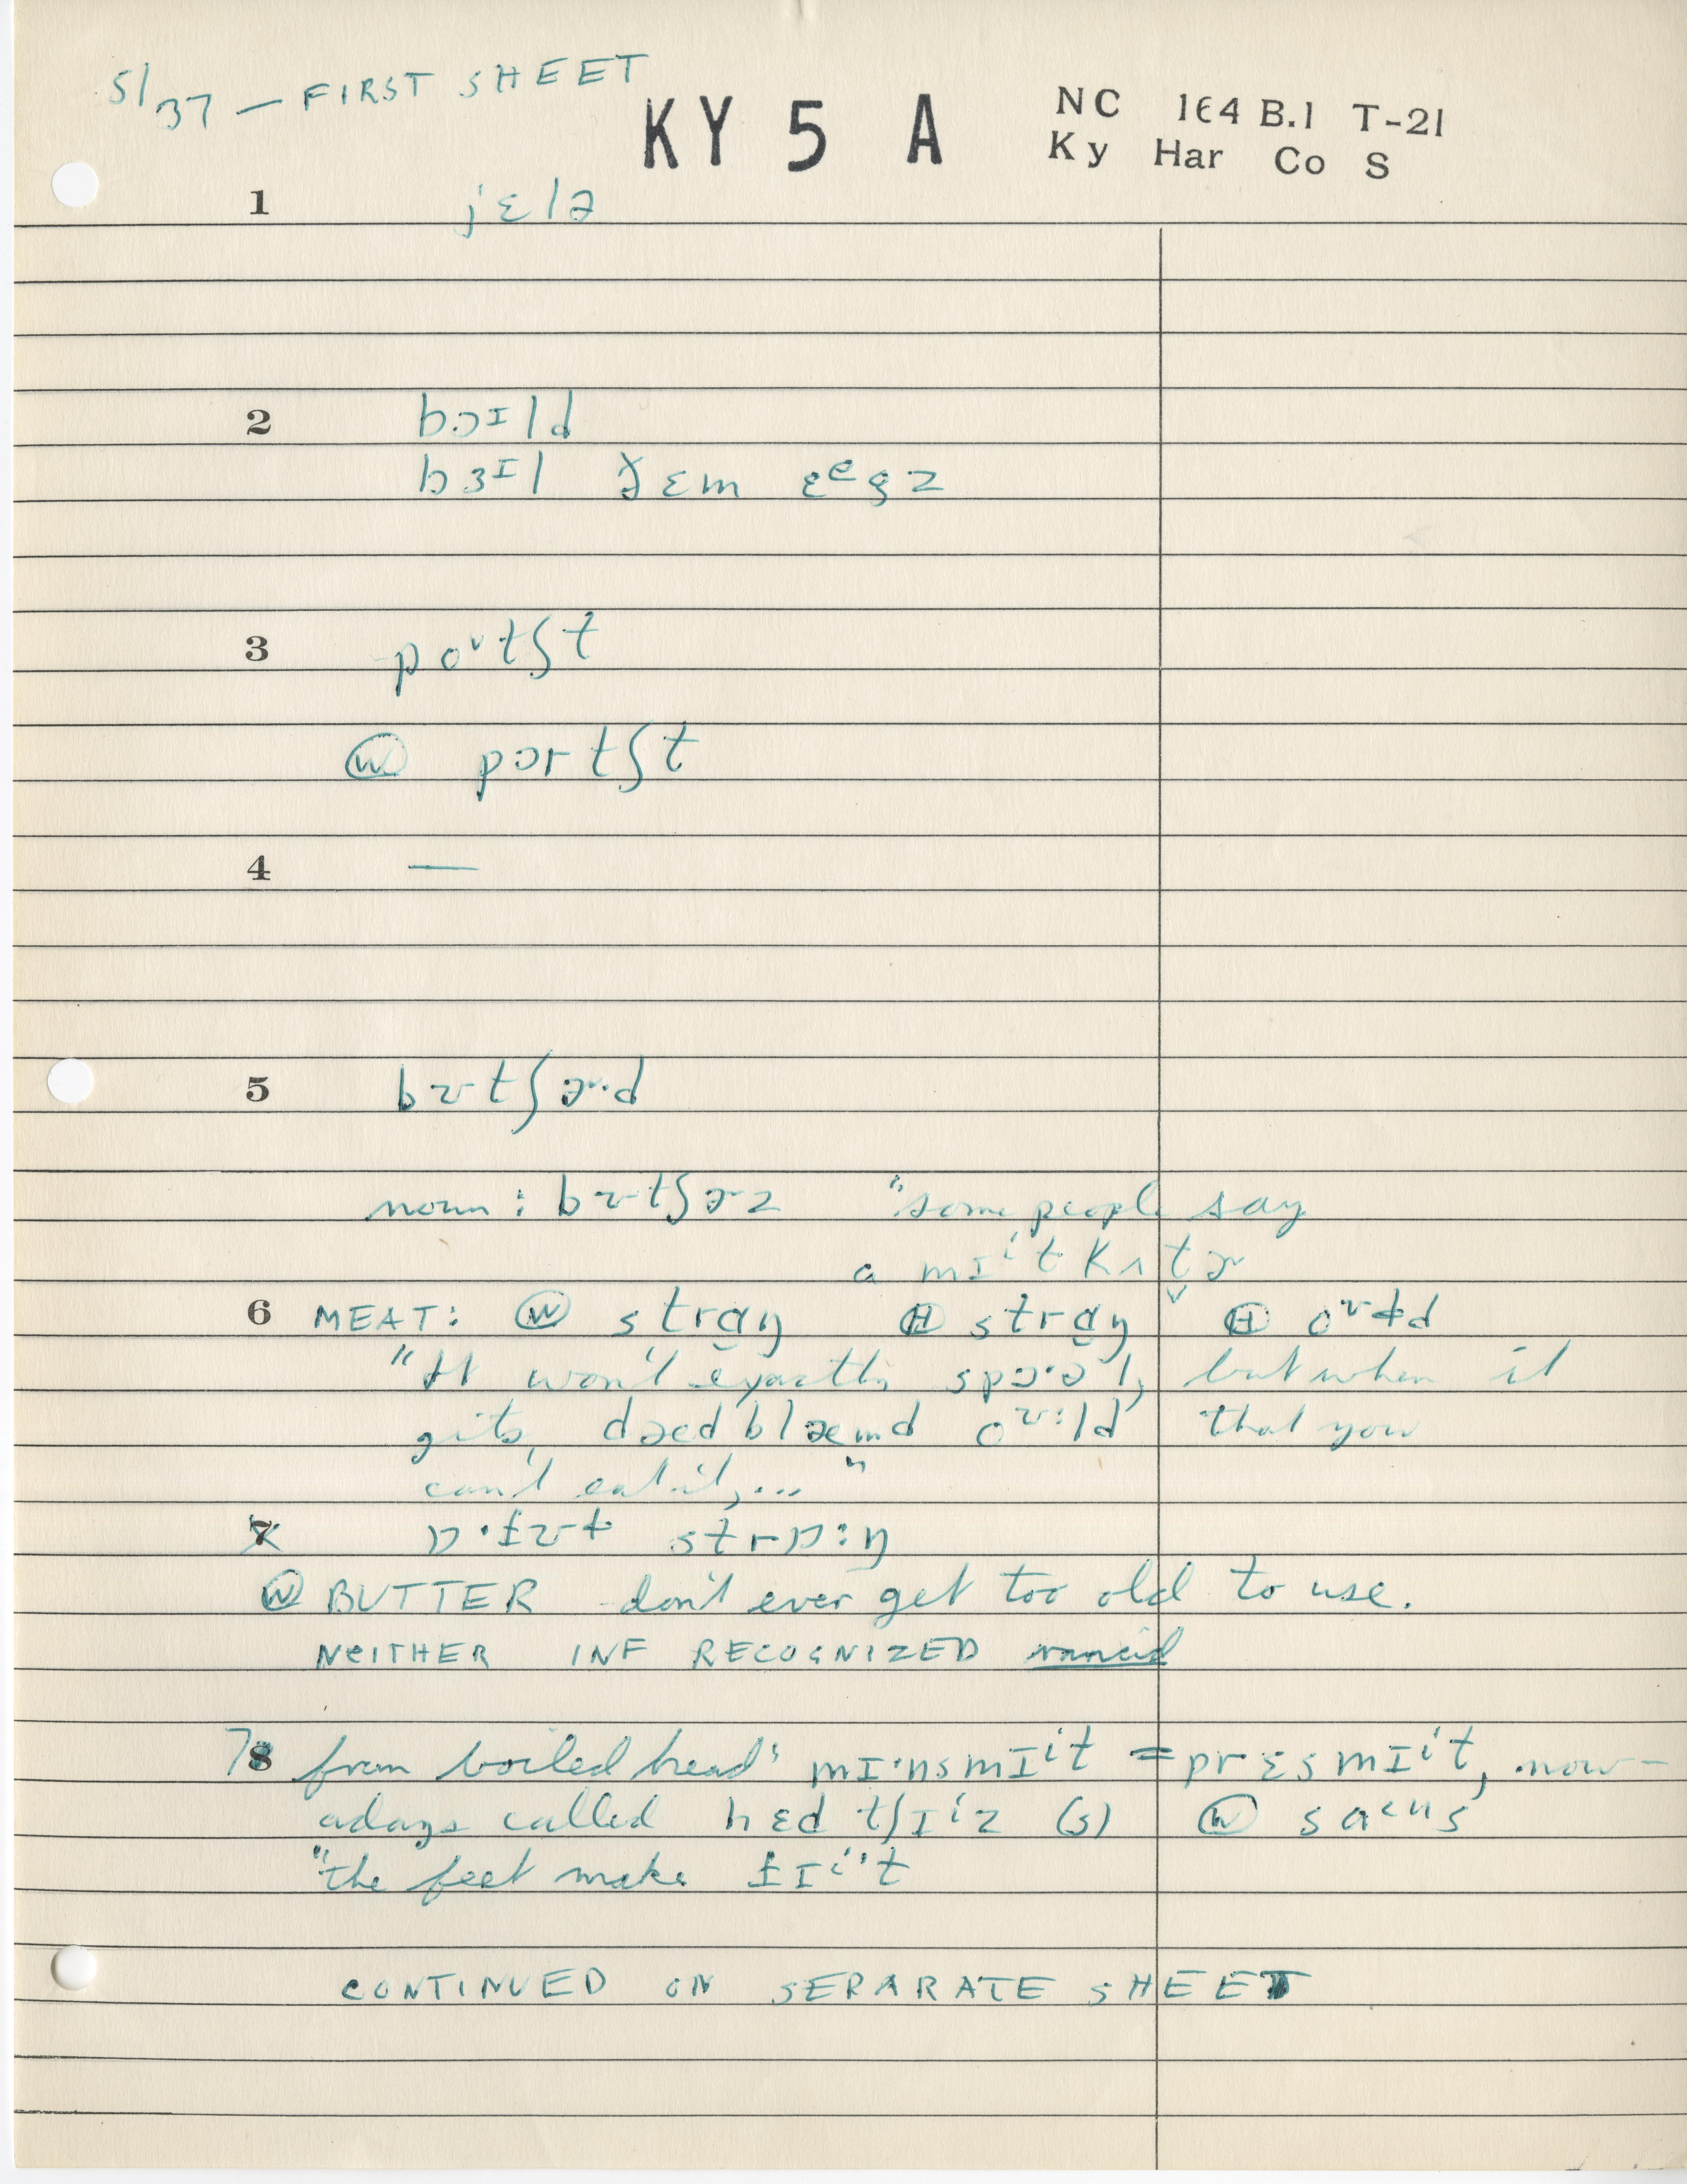 5/37 — FIRST SHEET
KY 5 A
NC 164 B.1 T-21
Ky Har Co S
1 jɛlə
2 bɔɪld
bɜɪl ðɛm ɛᵉgz
3 poᵛtʃt
Ⓦ pɔrtʃt
4 —
5 bʊtʃɚ·d
noun: bʊtʃɚz "some people say
a mɪⁱt kʌtɚ
6 MEAT: Ⓦ strɑŋ Ⓗ strɑŋ Ⓗ oᶷɫd
"It won't exactly spɔ·ə l, but when it
gits, dæd blæmd oᶷ:ld that you
can't eat it, ..."
7 strɒ:ŋ
Ⓦ BUTTER don't ever get too old to use.
NEITHER INF RECOGNIZED rancid
7 8 from boiled head: mɪ·nsmɪⁱt = prɛsmɪⁱt, now-
adays called hɛd tʃɪⁱz (s) Ⓦ
"the feet make
CONTINUED ON SEPARATE SHEET